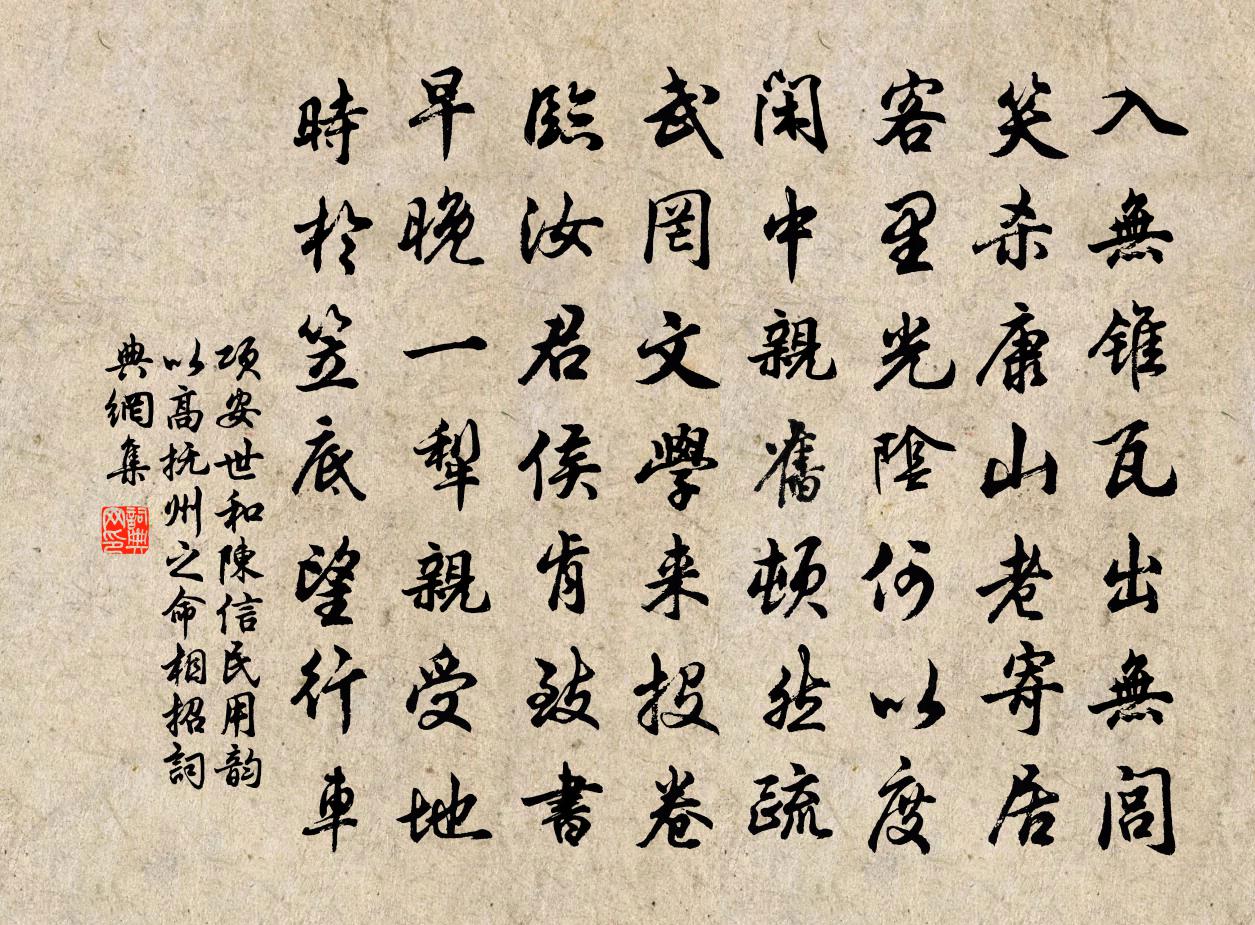 入無錐瓦出無閭
笑殺康山老寄居
客里光陰何以度
閑中親舊頓然疏
武罔文學来投卷
臨汝君侯肯致書
早晚一犁親受地
時於笠底望行車
項安世和陳信民用韵
以高抚州之命相招詞
典網集
詞典网印